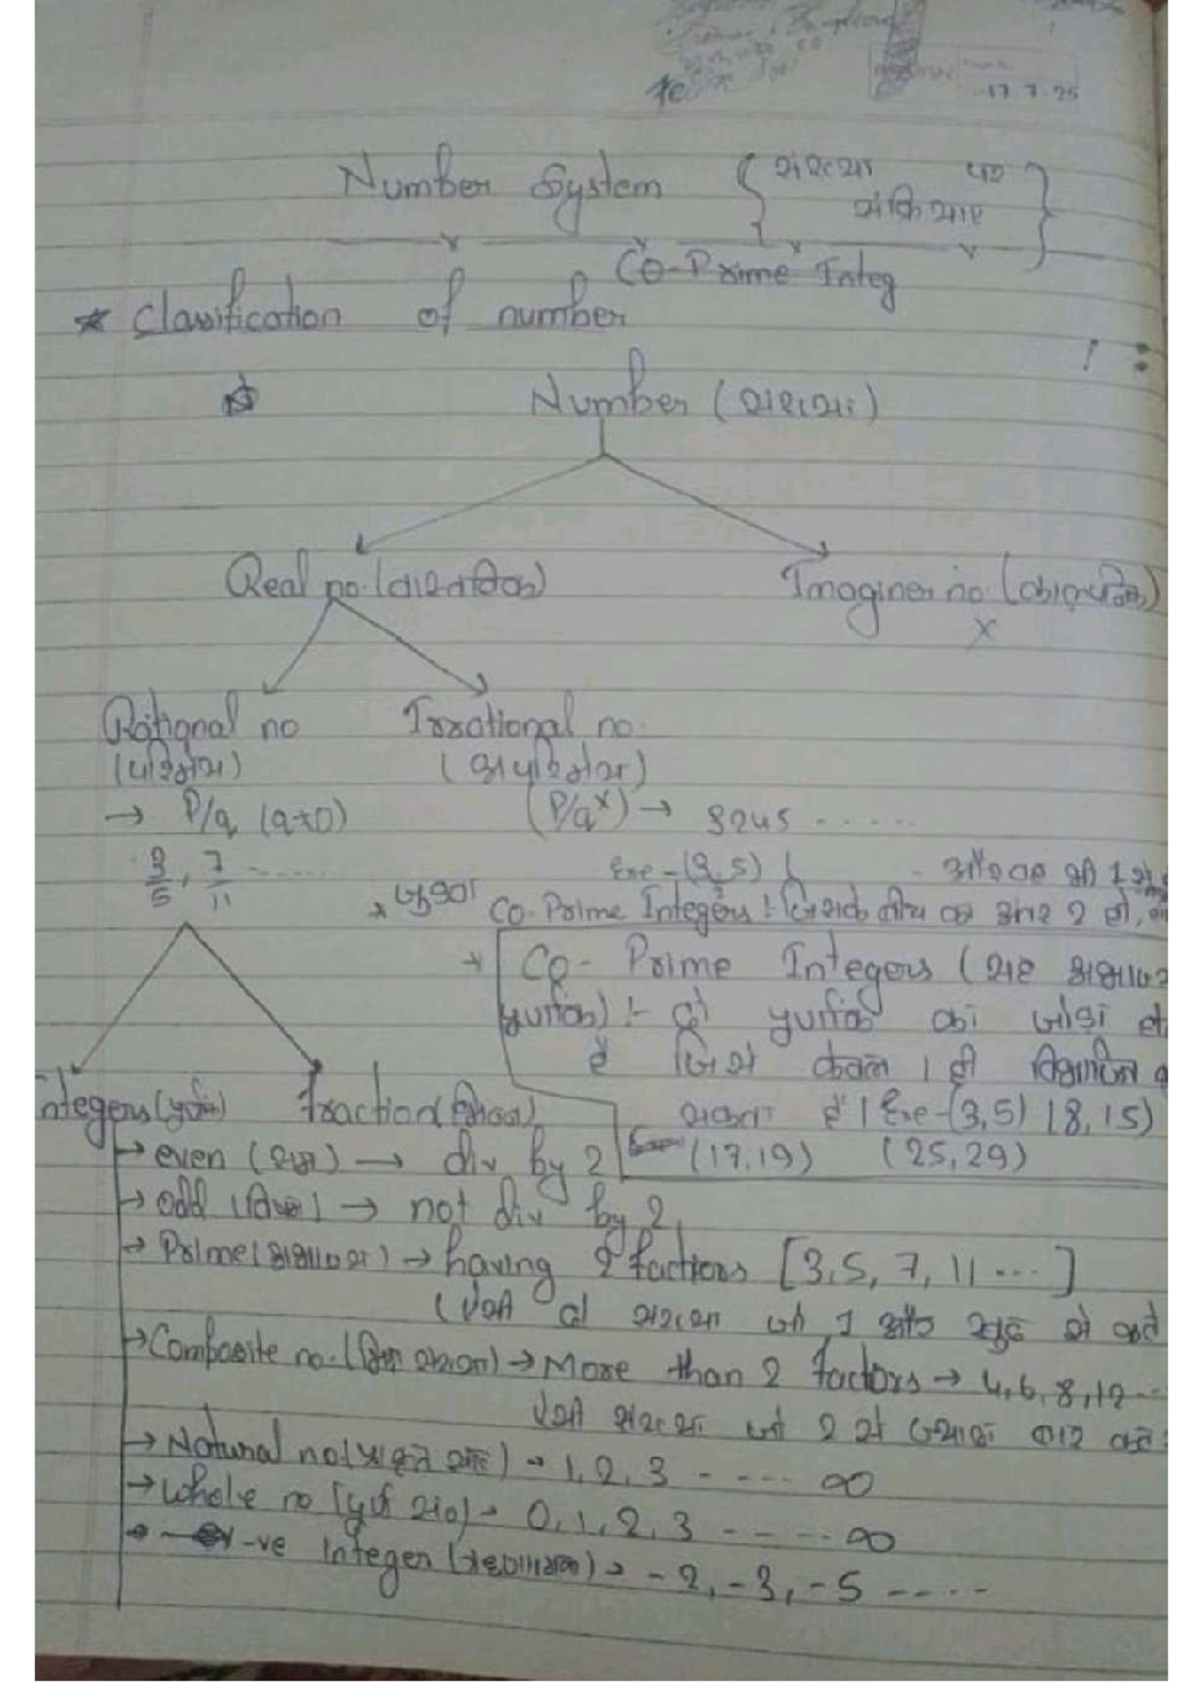 17.7.25
Number System { संख्या पर
संक्रियाएं }
Co-Prime Integ
* Classification of number
Number (संख्या)
Real no. (वास्तविक) Imaginer no. (काल्पनिक)
X
Rational no Irrational no.
(परिमेय) (अपरिमेय)
→ P/q (q≠0) (P/q×) →
3/5, 7/11 ......
Exe - (3,5)
Co-Prime Integers :- जिसके बीच का अन्तर 2 हो,
* Co-Prime Integers (सह अभाज्य
पूर्णांक) :- दो पूर्णांक का जोड़ा
है जिसे केवल 1 ही विभाजित
सकता है। Exe-(3,5) (8,15)
(17,19) (25,29)
ntegers (पूर्णांक) fraction (भिन्न)
→ even (सम) → div by 2
→ odd (विषम) → not div by 2
→ Prime (अभाज्य) → having 2 factiors [3,5,7,11 ...]
संख्या जो 1 और खुद से कटे
→ Composite no. → More than 2 factors → 4,6,8,12...
ऐसी संख्या जो 2 से ज्यादा बार कटे
→ Natural no (प्राकृत सं०) → 1,2,3 ----- ∞
→ Whole no (पूर्ण सं०) → 0,1,2,3 ----- ∞
→ -ve integer (ऋणात्मक) → -2,-3,-5 ----